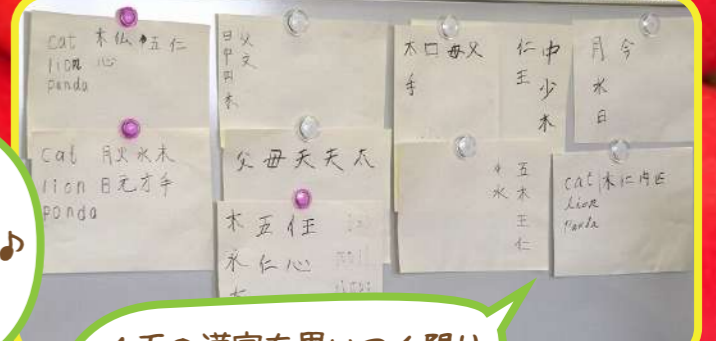 cat 木仏中五仁
lion 心
panda
日父
中文
円
木
木口毋父
手
仁中
王少
木
月今
水
日
cat 月火水木
lion 日元才手
panda
父母天夫犬
木五任
永仁心
中五
水木
王
仁
cat 木仁内匹
lion
panda
♪
4画の漢字を思いつく限り